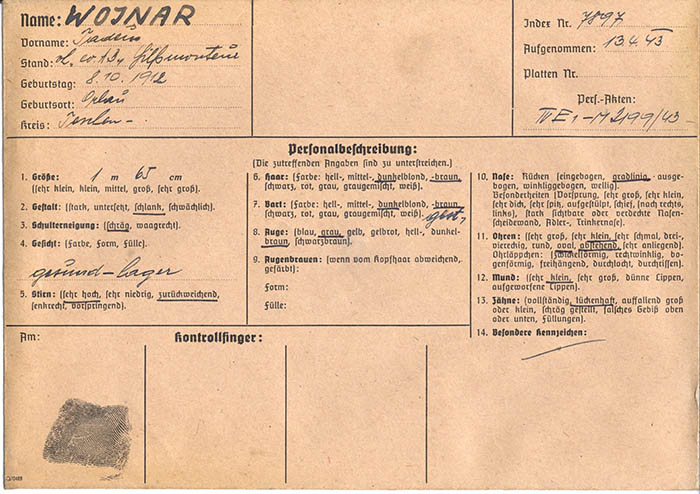 Name: WOJNAR
Vorname:
Stand:
Geburtstag: 8. 10. 1912
Geburtsort: Orlau
Kreis:
Index Nr. 7897
Aufgenommen: 13.4.43
Platten Nr.
Pers.-Akten:
IV E 1-M2199/43-
Personalbeschreibung:
(Die zutreffenden Angaben sind zu unterstreichen.)
1. Größe: 1 m 65 cm
(sehr klein, klein, mittel, groß, sehr groß).
2. Gestalt: (stark, untersetzt, schlank, schwächlich).
3. Schulterneigung: (schräg, waagrecht).
4. Gesicht: (Farbe, Form, Fülle).
gesund-lager
5. Stirn: (sehr hoch, sehr niedrig, zurückweichend,
senkrecht, vorspringend).
6. Haar: (Farbe: hell-, mittel-, dunkelblond, -braun,
schwarz, rot, grau, graugemischt, weiß).
7. Bart: (Farbe: hell-, mittel-, dunkelblond, -braun,
schwarz, rot, grau, graugemischt, weiß).
8. Auge: (blau, grau, gelb, gelbrot, hell-, dunkel-
braun, schwarzbraun).
9. Augenbrauen: (wenn vom Kopfhaar abweichend,
gefärbt):
Form:
Fülle:
10. Nase: Rücken (eingebogen, gradlinig, ausge-
bogen, winkliggebogen, wellig).
Besonderheiten (Vorsprung, sehr groß, sehr klein,
sehr dick, sehr spitz, aufgestülpt, schief, (nach rechts,
links), stark sichtbare oder verdeckte Nasen-
scheidewand, Adler-, Trinkernase).
11. Ohren: (sehr groß, sehr klein, sehr schmal, drei-
viereckig, rund, oval, abstehend, sehr anliegend).
Ohrläppchen: (zwickelförmig, rechtwinklig, bo-
genförmig, freihängend, durchlocht, durchrissen).
12. Mund: (sehr klein, sehr groß, dünne Lippen,
aufgeworfene Lippen).
13. Zähne: (vollständig, lückenhaft, auffallend groß
oder klein, schräg gestellt, falsches Gebiß oben
oder unten, Füllungen).
14. Besondere Kennzeichen:
Am:
Kontrollfinger: